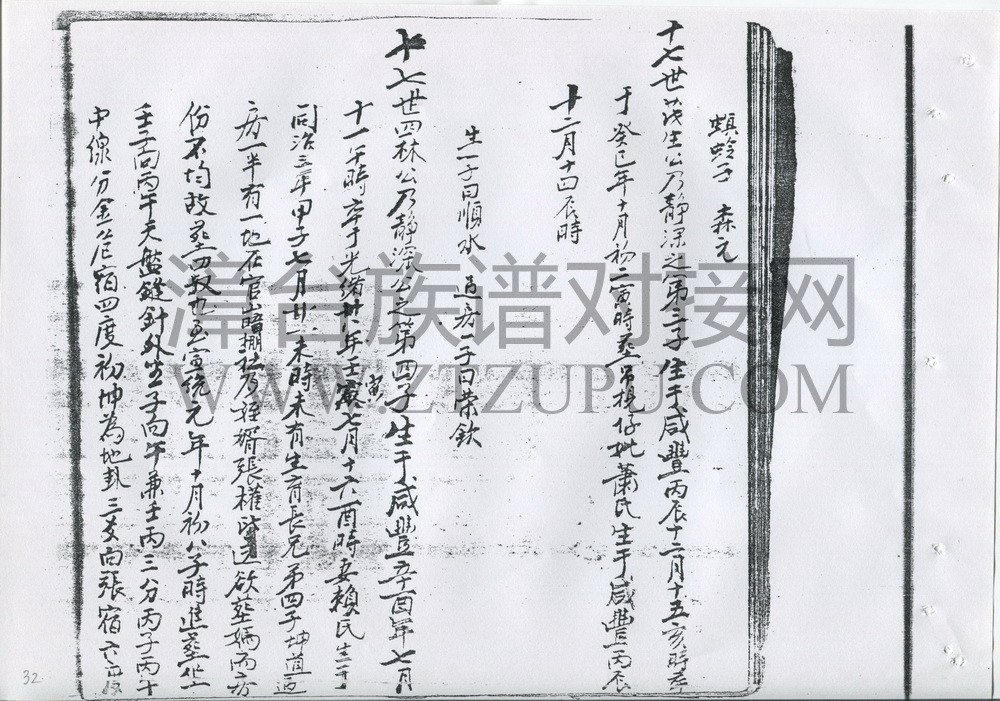 螟蛉子 森元
十七世茂生公乃靜深之第三子 生于咸豐丙辰十二月十五亥時卒
于癸巳年十月初二寅時葬吊視仔妣蕭氏生于咸豐丙辰
十二月十四辰時
生一子曰順水 過房一子曰榮欽
十七世四林公乃靜深公之第四子生于咸豐辛酉年七月
十一午時卒于光緒廿八年壬寅七月十六酉時妻賴氏生于
寅
同治三年甲子七月廿一未時未有生育長兄第四子坤道過
房一半有一地在官山暗挷社乃姪婿張權 送欲葬媽兩房
份不均故葬四叔也至宣統元年十月初八子時進葬坐
壬子向丙午天盤縫針外坐子向午兼壬丙三分丙子丙午
中線分金 危宿四度初坤為地卦三爻向張宿六度
32
漳台族谱对接网
WWW.ZTZUPU.COM